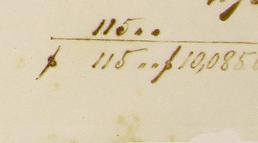 115 . .
$ 115 . . $ 10,085